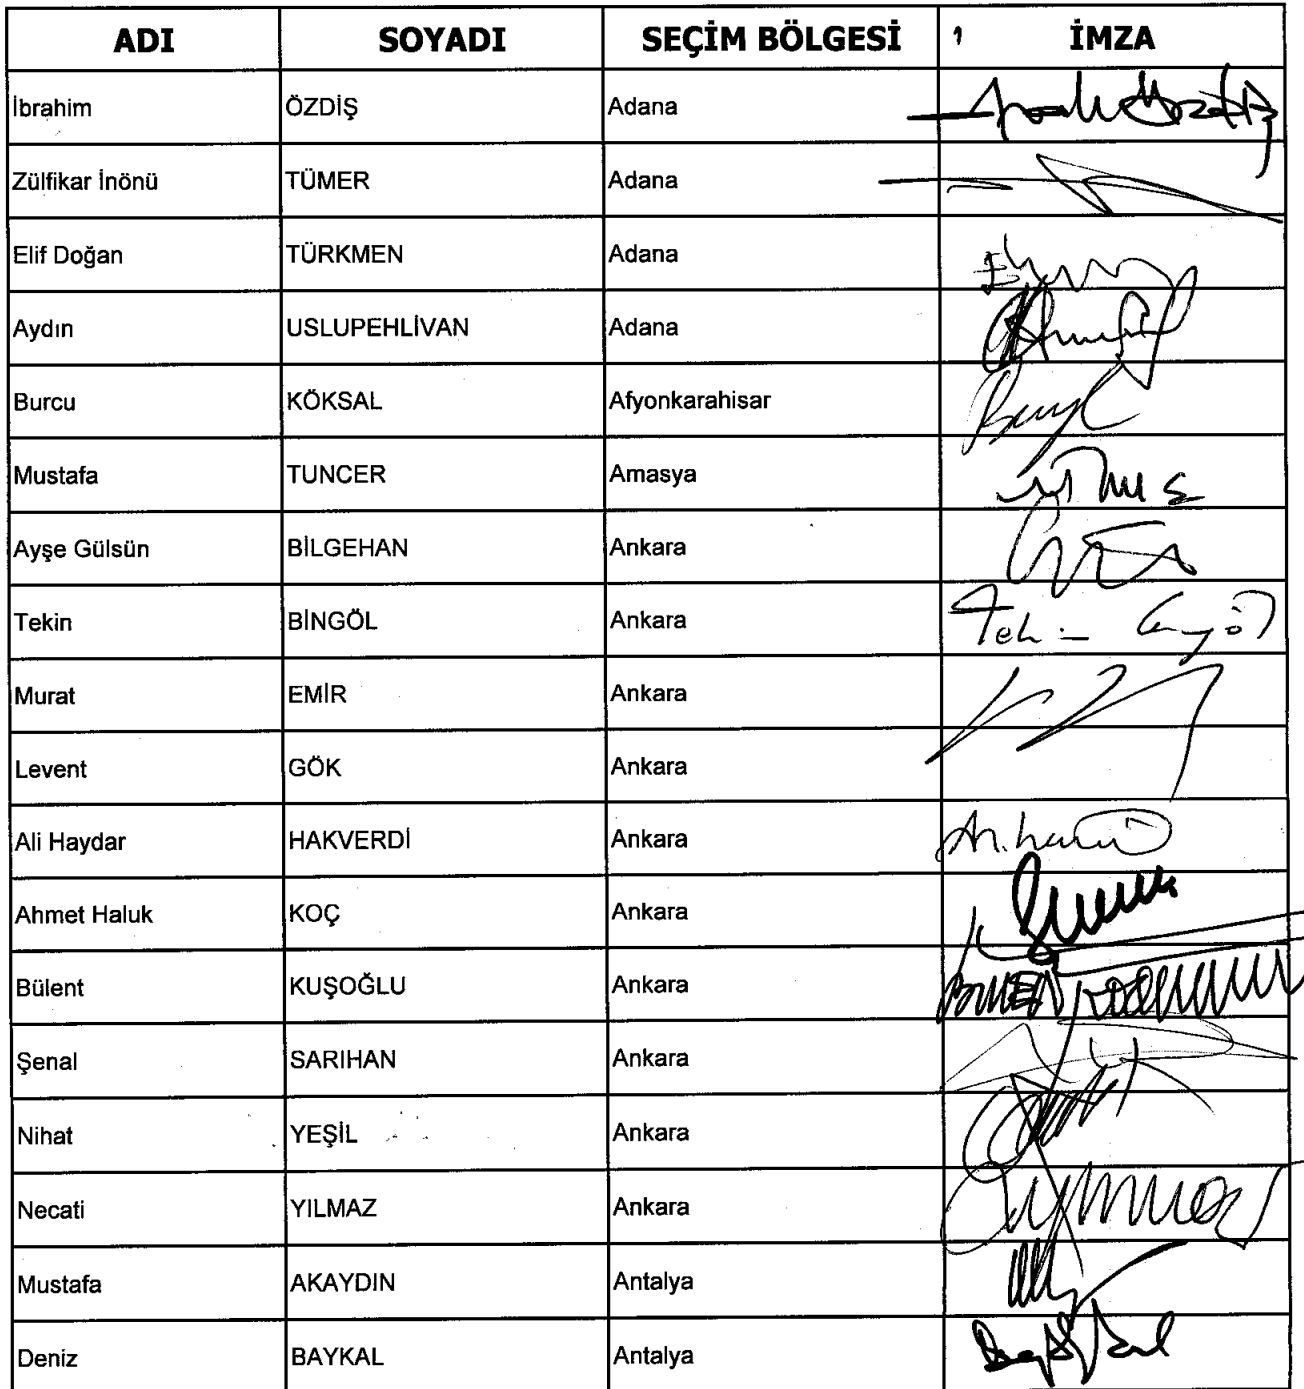 ADI SOYADI SEÇİM BÖLGESİ İMZA
İbrahim ÖZDİŞ Adana
Zülfikar İnönü TÜMER Adana
Elif Doğan TÜRKMEN Adana
Aydın USLUPEHLİVAN Adana
Burcu KÖKSAL Afyonkarahisar
Mustafa TUNCER Amasya
Ayşe Gülsün BİLGEHAN Ankara
Tekin BİNGÖL Ankara
Murat EMİR Ankara
Levent GÖK Ankara
Ali Haydar HAKVERDİ Ankara
Ahmet Haluk KOÇ Ankara
Bülent KUŞOĞLU Ankara
Şenal SARIHAN Ankara
Nihat YEŞİL Ankara
Necati YILMAZ Ankara
Mustafa AKAYDIN Antalya
Deniz BAYKAL Antalya